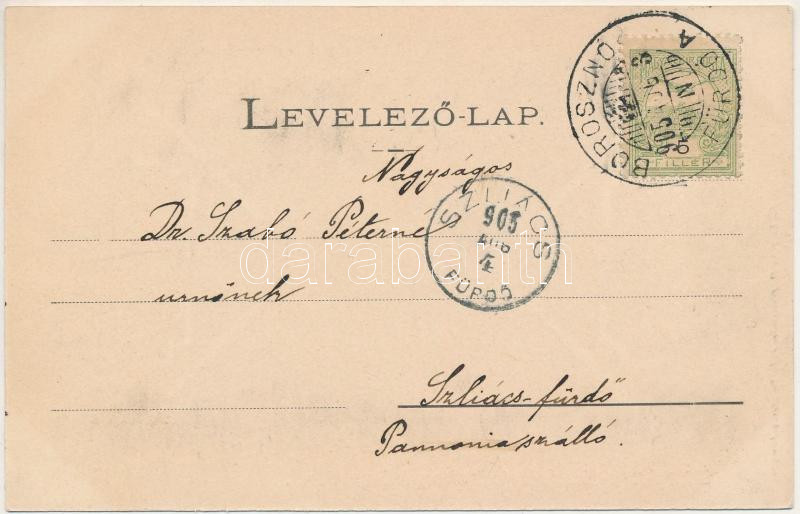 LEVELEZŐ-LAP.
Nagyságos
Dr. Szabó Péterné
urnőnek
Szliács-fürdő
Pannonia szálló.
BOROSZNÓ FÜRDŐ
FILLÉR
SZLIÁCS
905
AUG
4
FÜRDŐ
darabanth